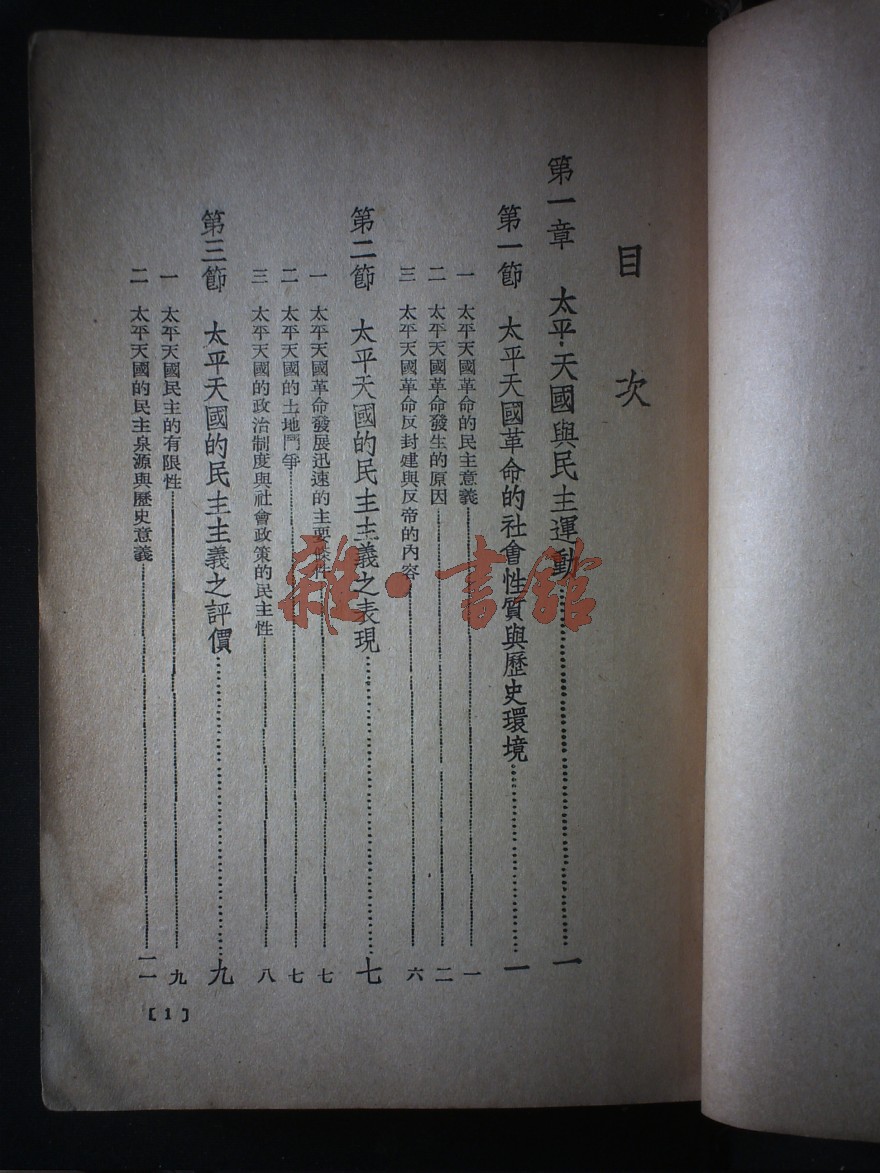 目次
第一章 太平天國與民主運動……一
第一節 太平天國革命的社會性質與歷史環境……一
一 太平天國革命的民主意義……一
二 太平天國革命發生的原因……二
三 太平天國革命反封建與反帝的內容……六
第二節 太平天國的民主主義之表現……七
一 太平天國革命發展迅速的主要條件……七
二 太平天國的土地鬥爭……七
三 太平天國的政治制度與社會政策的民主性……八
第三節 太平天國的民主主義之評價……九
一 太平天國民主的有限性……九
二 太平天國的民主泉源與歷史意義……一一
[1]
雜·書館